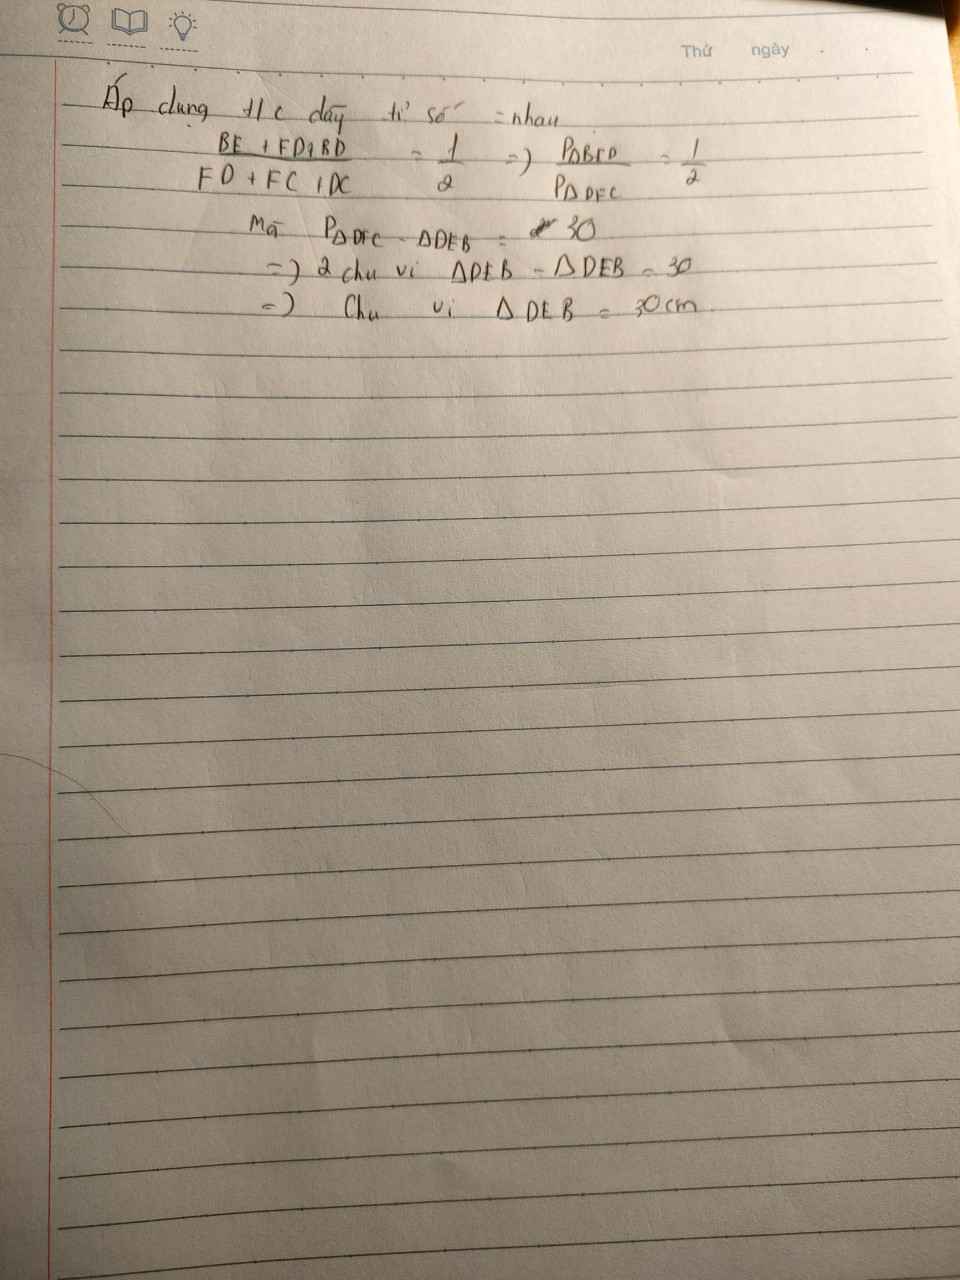 Thứ ngày
Áp dụng t/c dãy tỉ số = nhau
BE + ED + BD / FD + FC + DC = 1/2 => P∆BED / P∆DFC = 1/2
Mà P∆DFC - ∆DEB = 30
=> 2 chu vi ∆DEB - ∆DEB = 30
=> Chu vi ∆DEB = 30cm